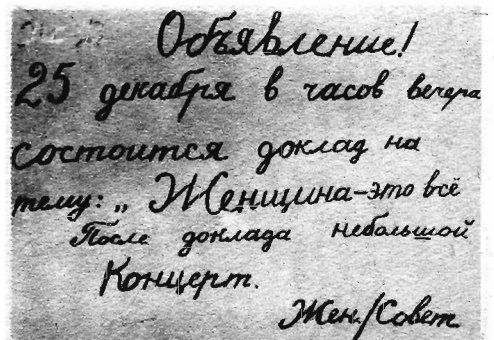 Объявление!
25 декабря в часов вечера
состоится доклад на
тему: „ Женщина-это всё
После доклада небольшой
Концерт.
Жен./Совет.